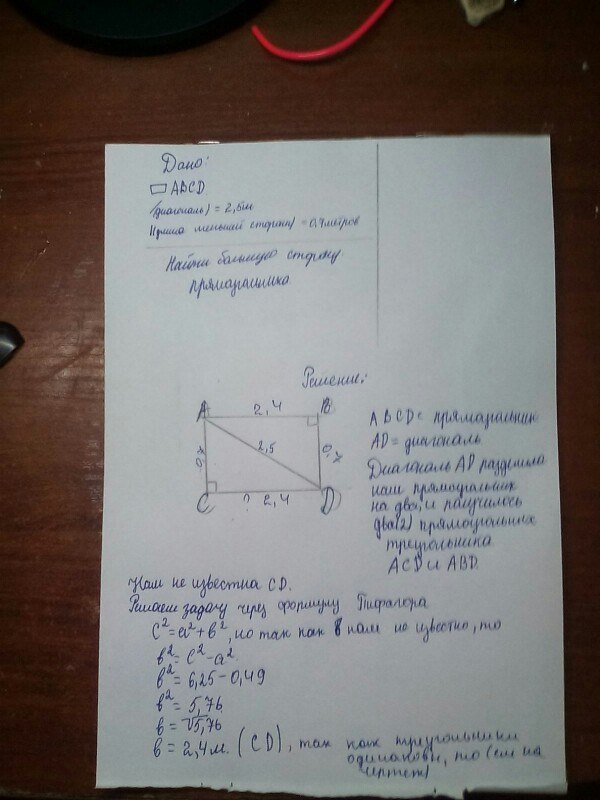 Дано:
ABCD.
(диагональ) = 2,5м
(длина меньшей стороны) = 0,7метров
Найти большую сторону
прямоугольника.
Решение:
A 2,4 B
0,7 2,5 0,7
C ? 2,4 D
ABCD = прямоугольник
AD = диагональ
Диагональ AD разделила
наш прямоугольник
на два, и получилось
два(2) прямоугольных
треугольника
ACD и ABD.
Нам не известна CD.
Решаем задачу через формулу Пифагора
c²=a²+b², но так как b нам не известно, то
b²= c²-a².
b²= 6,25-0,49
b²= 5,76
b= √5,76
b= 2,4м. (CD), так как треугольники
одинаковы, то (см на
чертеж)